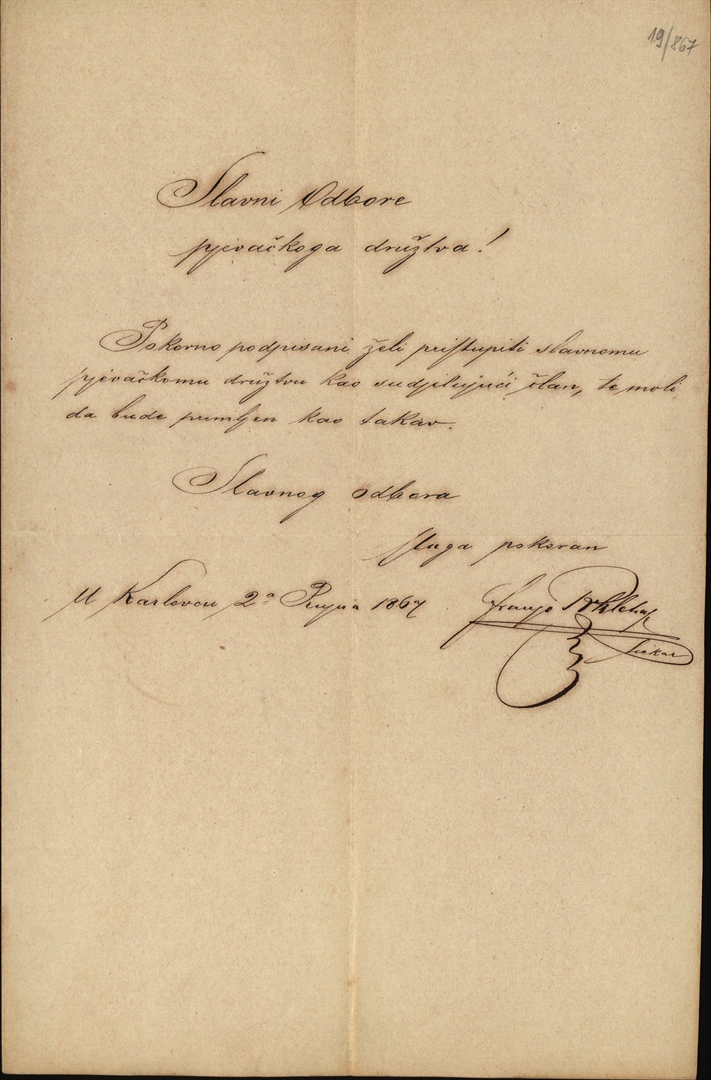 19/867
Slavni Odbore
pjevačkoga družtva!
Pokorno podpisani želi pristupiti slavnomu
pjevačkomu družtvu kao sudjelujući član, te moli,
da bude primljen kao takav.
Slavnog odbora
sluga pokoran
U Karlovcu 2a Rujna 1867
Franjo